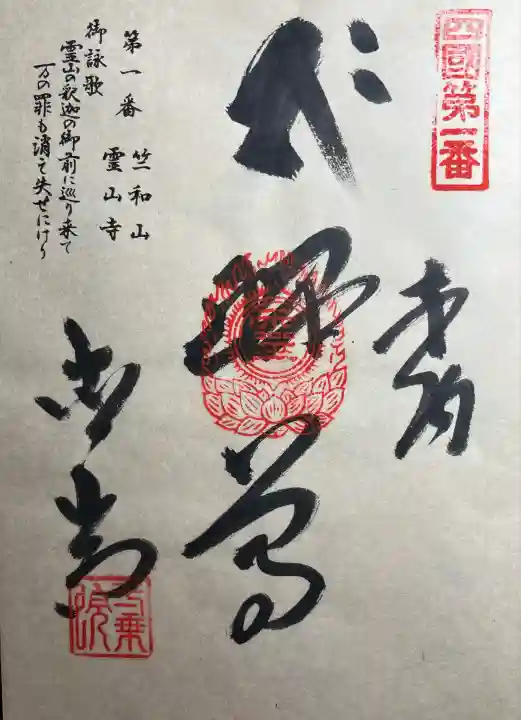 四國第一番
奉納
釋迦尊
第一番 竺和山
霊山寺
御詠歌
霊山の釈迦の御前に巡り来て
万の罪も消え失せにけり
一乗院